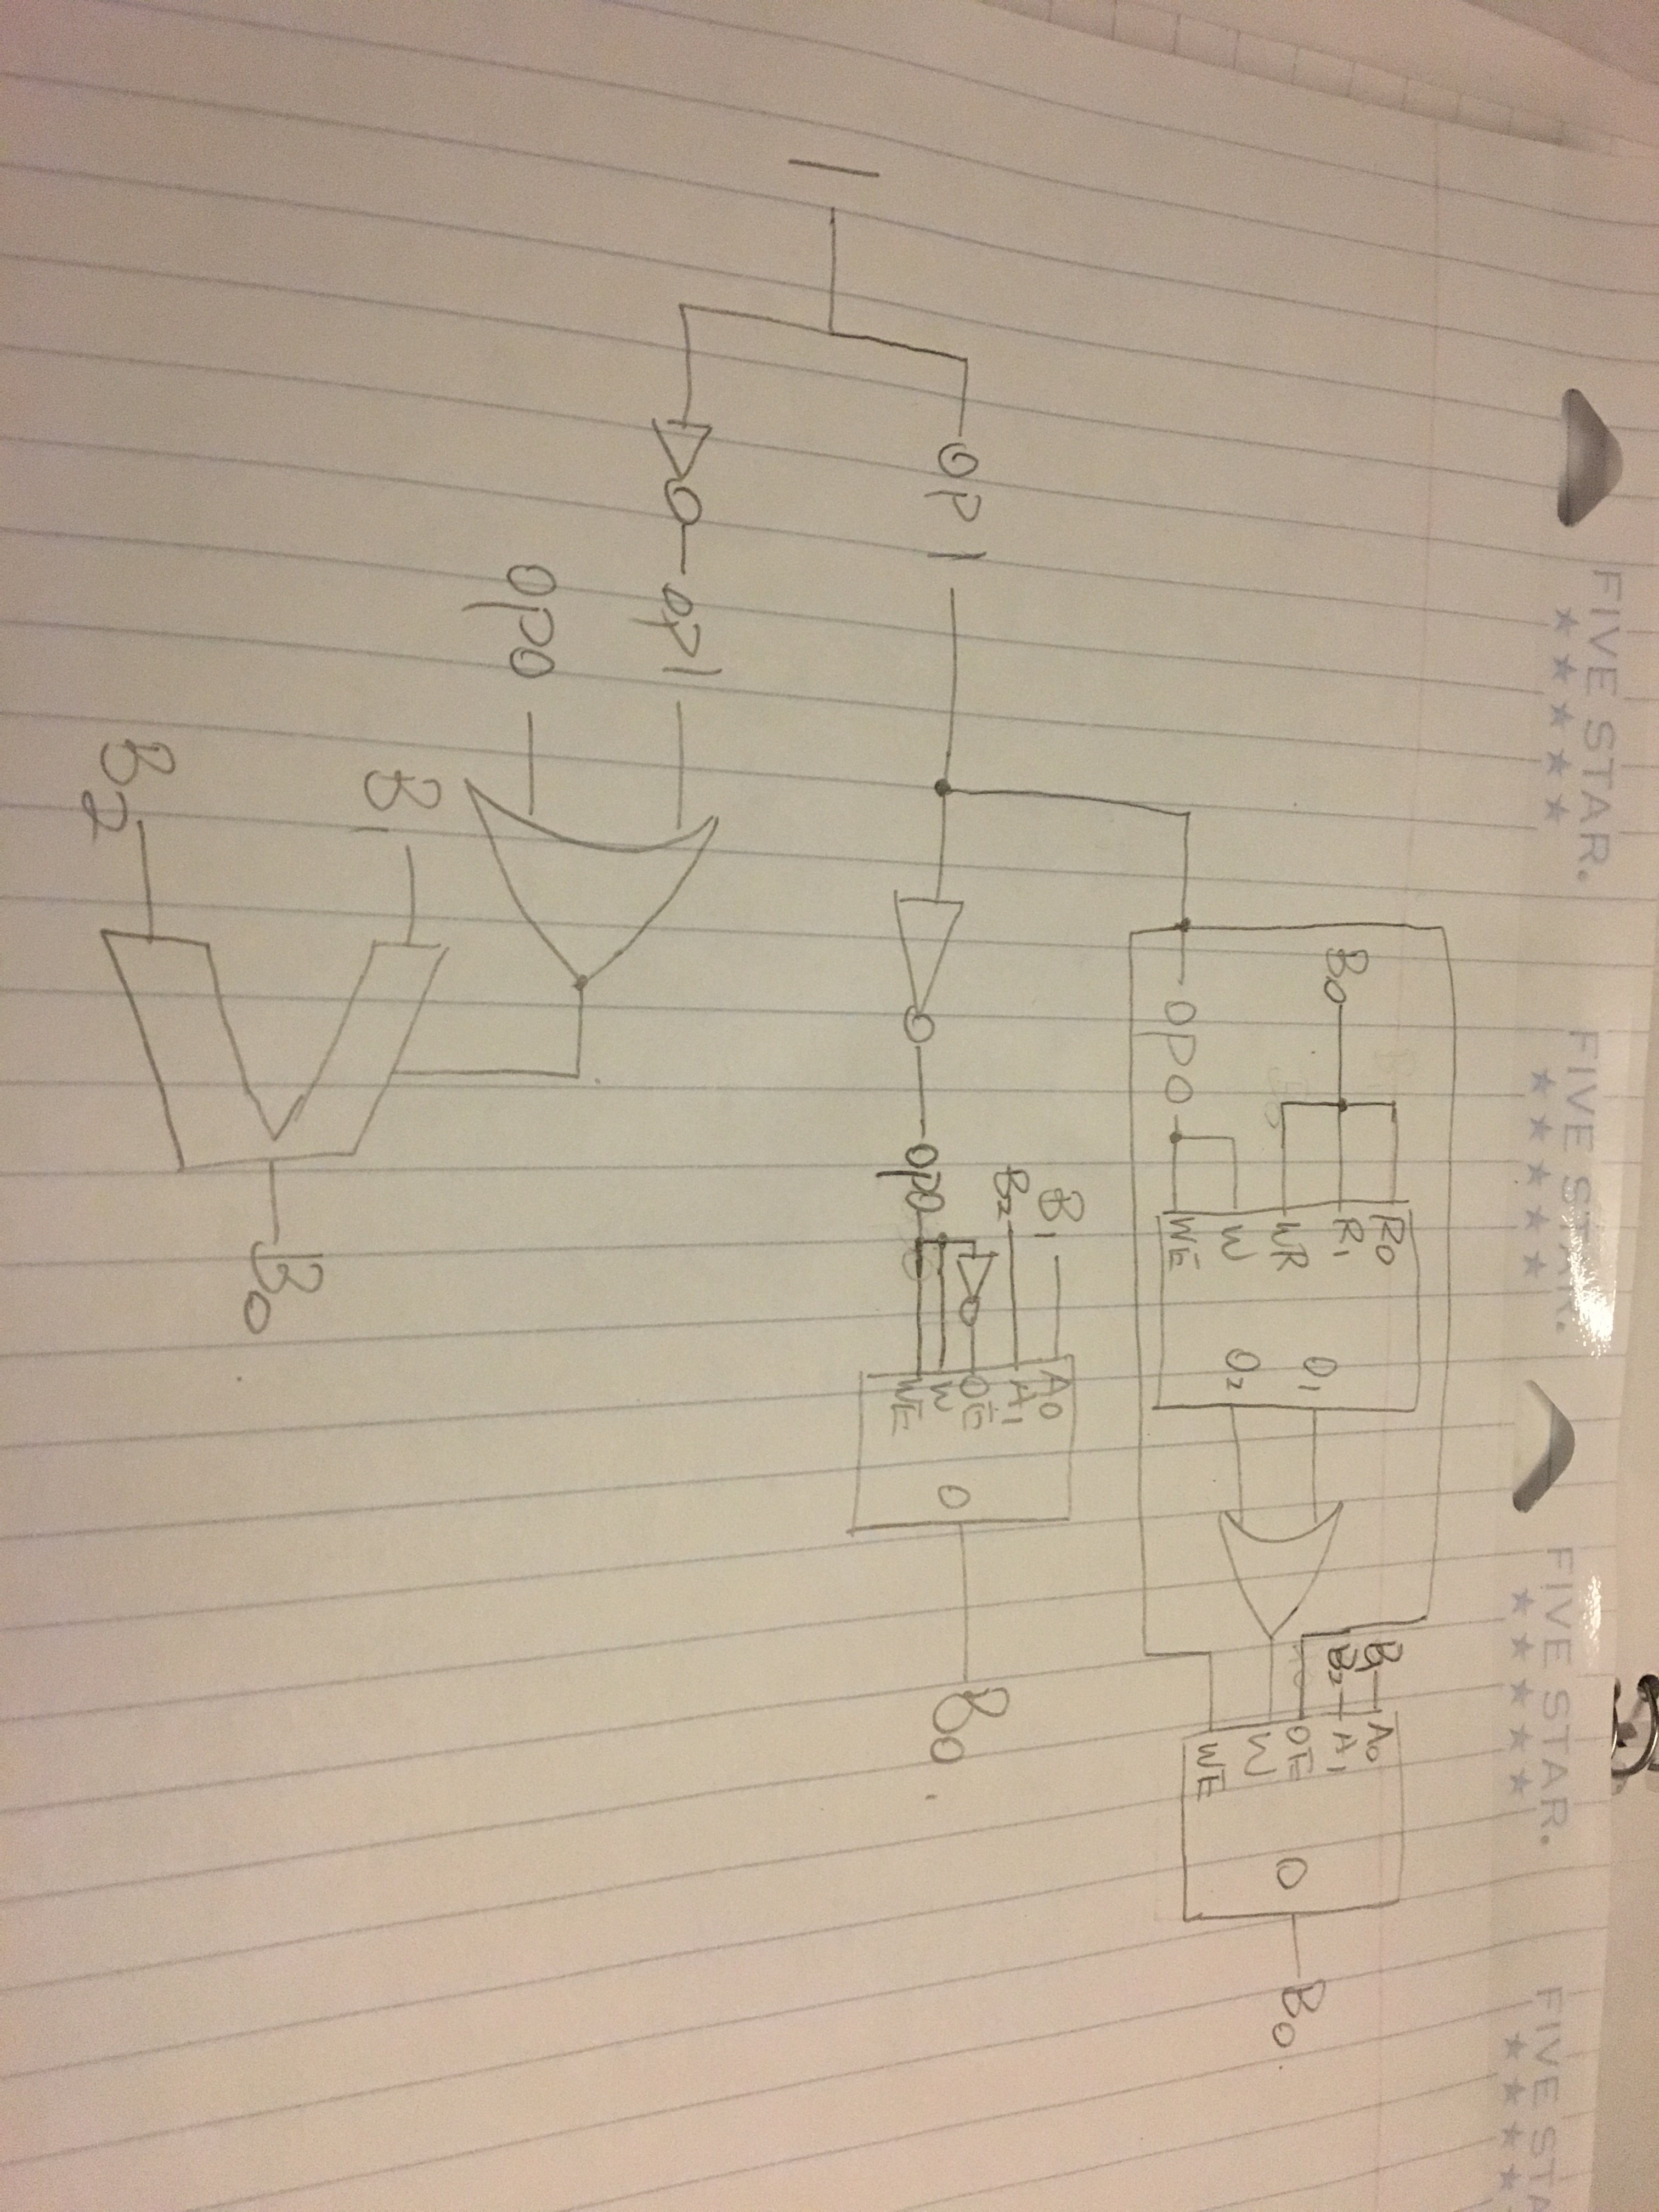 FIVE STAR.
★★★★★
FIVE STAR.
★★★★★
FIVE STAR.
★★★★★
FIVE STA
★★★★
B0
R0
R1
WR
W
WE
OP0
O1
O2
B1
B2
A0
A1
OE
W
WE
O
B0
1
OP1
OP0
B1
B2
A0
A1
OE
W
WE
O
B0
OP1
OP0
B1
B2
B0